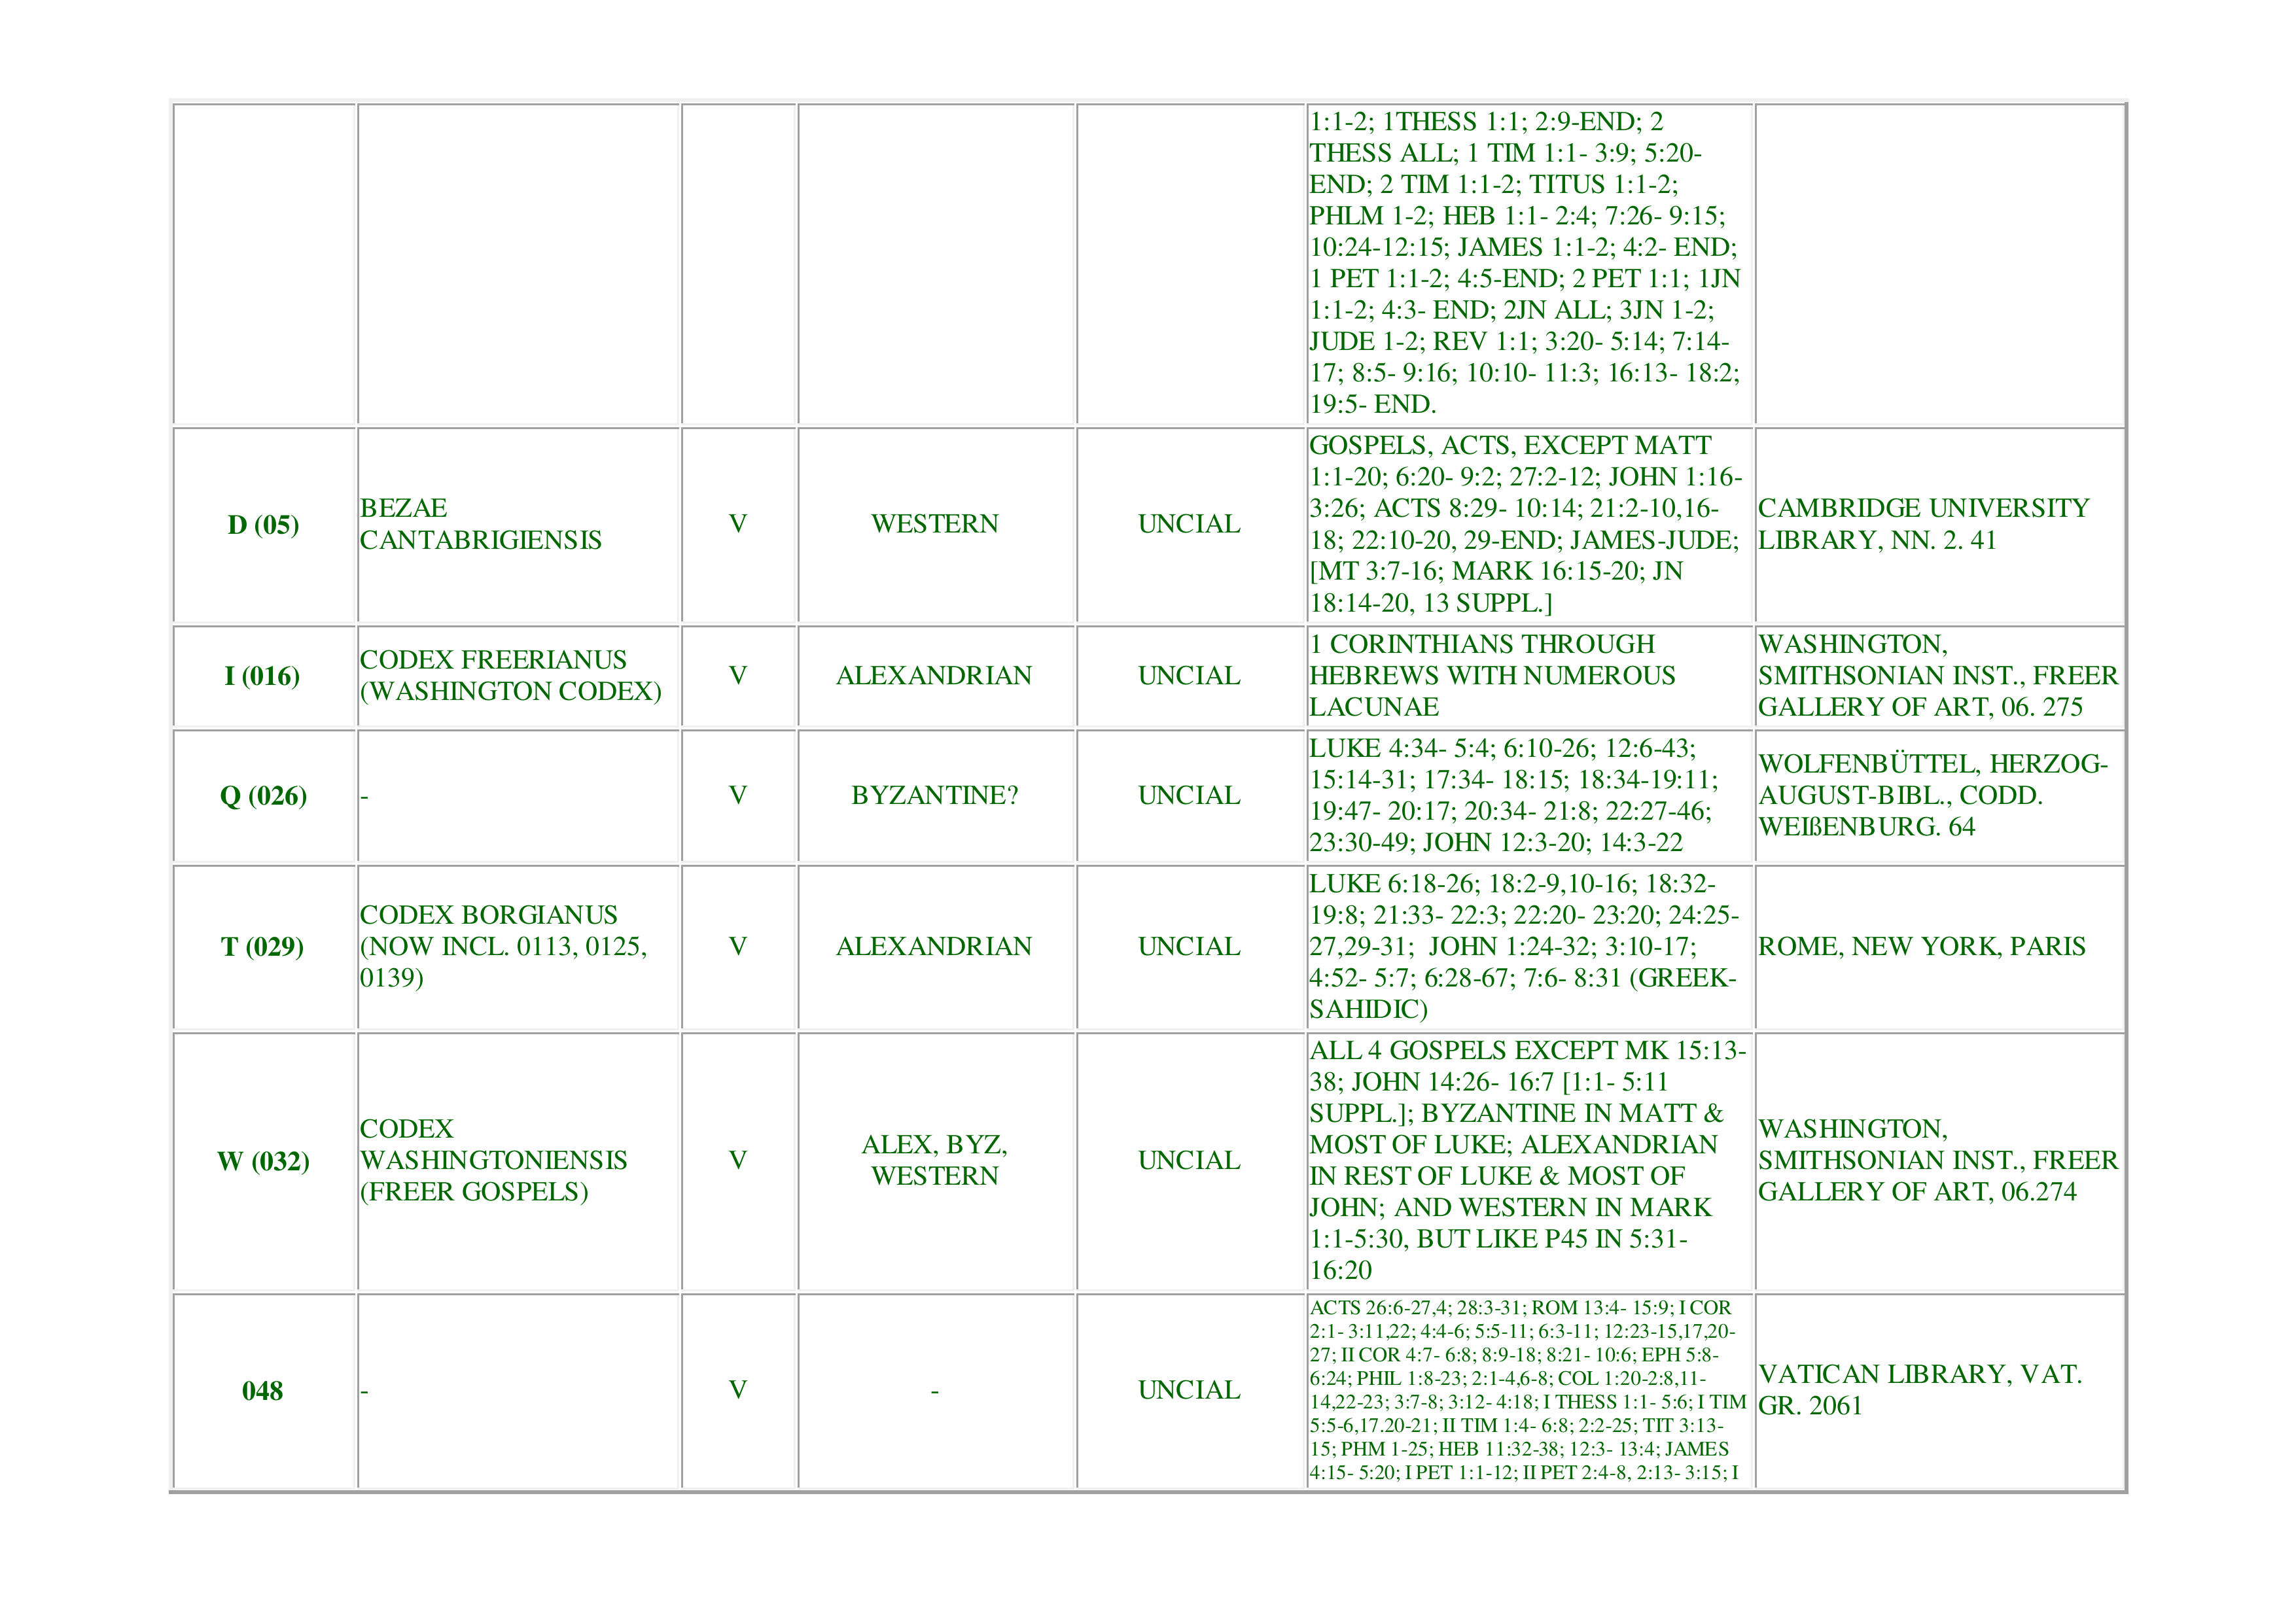 1:1-2; 1THESS 1:1; 2:9-END; 2
THESS ALL; 1 TIM 1:1- 3:9; 5:20-
END; 2 TIM 1:1-2; TITUS 1:1-2;
PHLM 1-2; HEB 1:1- 2:4; 7:26- 9:15;
10:24-12:15; JAMES 1:1-2; 4:2- END;
1 PET 1:1-2; 4:5-END; 2 PET 1:1; 1JN
1:1-2; 4:3- END; 2JN ALL; 3JN 1-2;
JUDE 1-2; REV 1:1; 3:20- 5:14; 7:14-
17; 8:5- 9:16; 10:10- 11:3; 16:13- 18:2;
19:5- END.
D (05)
BEZAE
CANTABRIGIENSIS
V
WESTERN
UNCIAL
GOSPELS, ACTS, EXCEPT MATT
1:1-20; 6:20- 9:2; 27:2-12; JOHN 1:16-
3:26; ACTS 8:29- 10:14; 21:2-10,16-
18; 22:10-20, 29-END; JAMES-JUDE;
[MT 3:7-16; MARK 16:15-20; JN
18:14-20, 13 SUPPL.]
CAMBRIDGE UNIVERSITY
LIBRARY, NN. 2. 41
I (016)
CODEX FREERIANUS
(WASHINGTON CODEX)
V
ALEXANDRIAN
UNCIAL
1 CORINTHIANS THROUGH
HEBREWS WITH NUMEROUS
LACUNAE
WASHINGTON,
SMITHSONIAN INST., FREER
GALLERY OF ART, 06. 275
Q (026)
-
V
BYZANTINE?
UNCIAL
LUKE 4:34- 5:4; 6:10-26; 12:6-43;
15:14-31; 17:34- 18:15; 18:34-19:11;
19:47- 20:17; 20:34- 21:8; 22:27-46;
23:30-49; JOHN 12:3-20; 14:3-22
WOLFENBÜTTEL, HERZOG-
AUGUST-BIBL., CODD.
WEIßENBURG. 64
T (029)
CODEX BORGIANUS
(NOW INCL. 0113, 0125,
0139)
V
ALEXANDRIAN
UNCIAL
LUKE 6:18-26; 18:2-9,10-16; 18:32-
19:8; 21:33- 22:3; 22:20- 23:20; 24:25-
27,29-31; JOHN 1:24-32; 3:10-17;
4:52- 5:7; 6:28-67; 7:6- 8:31 (GREEK-
SAHIDIC)
ROME, NEW YORK, PARIS
W (032)
CODEX
WASHINGTONIENSIS
(FREER GOSPELS)
V
ALEX, BYZ,
WESTERN
UNCIAL
ALL 4 GOSPELS EXCEPT MK 15:13-
38; JOHN 14:26- 16:7 [1:1- 5:11
SUPPL.]; BYZANTINE IN MATT &
MOST OF LUKE; ALEXANDRIAN
IN REST OF LUKE & MOST OF
JOHN; AND WESTERN IN MARK
1:1-5:30, BUT LIKE P45 IN 5:31-
16:20
WASHINGTON,
SMITHSONIAN INST., FREER
GALLERY OF ART, 06.274
048
-
V
-
UNCIAL
ACTS 26:6-27,4; 28:3-31; ROM 13:4- 15:9; I COR
2:1- 3:11,22; 4:4-6; 5:5-11; 6:3-11; 12:23-15,17,20-
27; II COR 4:7- 6:8; 8:9-18; 8:21- 10:6; EPH 5:8-
6:24; PHIL 1:8-23; 2:1-4,6-8; COL 1:20-2:8,11-
14,22-23; 3:7-8; 3:12- 4:18; I THESS 1:1- 5:6; I TIM
5:5-6,17.20-21; II TIM 1:4- 6:8; 2:2-25; TIT 3:13-
15; PHM 1-25; HEB 11:32-38; 12:3- 13:4; JAMES
4:15- 5:20; I PET 1:1-12; II PET 2:4-8, 2:13- 3:15; I
VATICAN LIBRARY, VAT.
GR. 2061